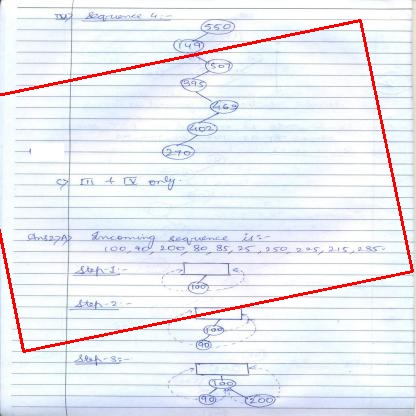 IV) Sequence 4:-
550
149
507
395
463
402
270
c) III & IV only.
Ans2)A) Incoming sequence is:-
100, 90, 200, 80, 85, 25, 250, 225, 215, 235.
Step-1:-
100
Step-2:-
100
90
Step-3:-
100
90 200